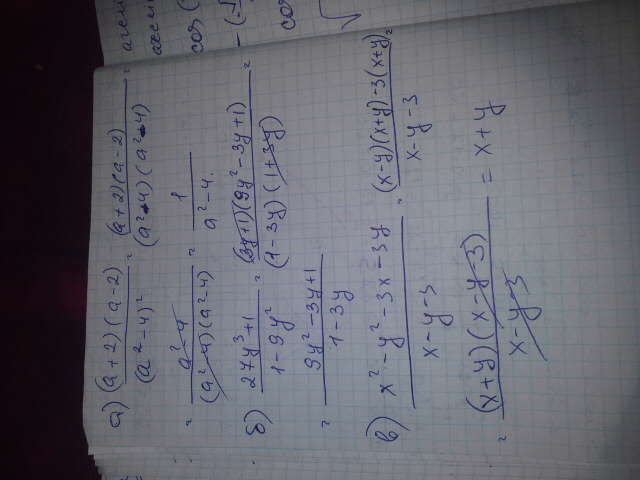 а) ((a+2)(a-2))/((a²-4)²) = ((a+2)(a-2))/((a²-4)(a²-4)) =
= (a²-4)/((a²-4)(a²-4)) = 1/(a²-4).
б) (27y³+1)/(1-9y²) = ((3y+1)(9y²-3y+1))/((1-3y)(1+3y)) =
= (9y²-3y+1)/(1-3y)
в) (x²-y²-3x-3y)/(x-y-3) = ((x-y)(x+y)-3(x+y))/(x-y-3) =
= ((x+y)(x-y-3))/(x-y-3) = x+y
cos (
cos